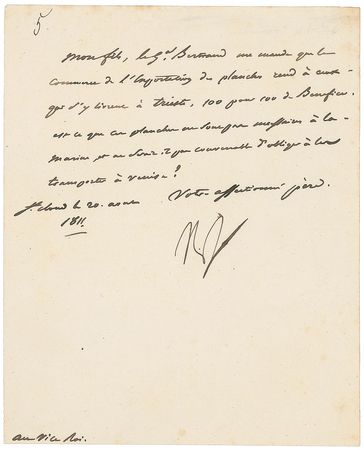 5
Mon fils, le Gal Bertrand me mande que le
Commerce de l'Exportation des planches rend à ceux
qui s'y livrent à trieste, 100 pour 100 de Benefice.
est ce que ces planches ne sont pas nécessaires à la
marine et ne serait-il pas convenable d'obliger à les
transporter à venise?
Votre affectionné père.
St Cloud le 20. août
1811.
au Vice Roi.